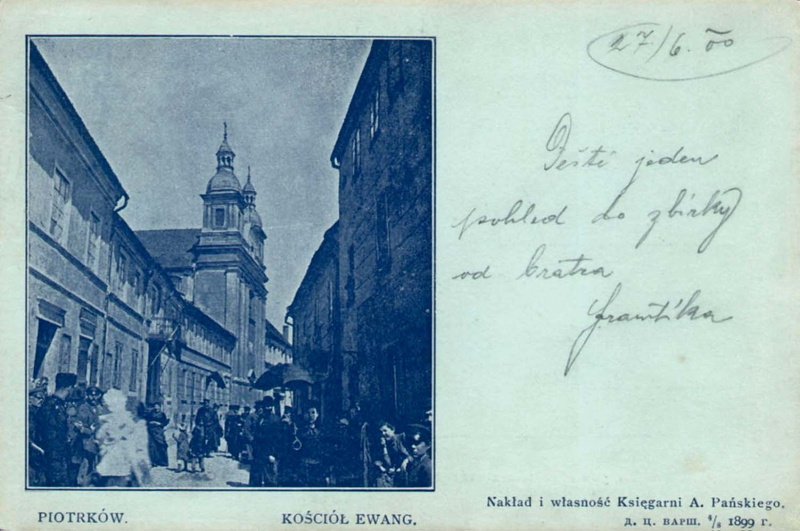 27/6.00
Ješti jeden
pohled do zbirky
od bratra
Frantíka
PIOTRKÓW.
KOŚCIÓŁ EWANG.
Nakład i własność Księgarni A. Pańskiego.
Д. Ц. ВАРШ. 4/8 1899 г.